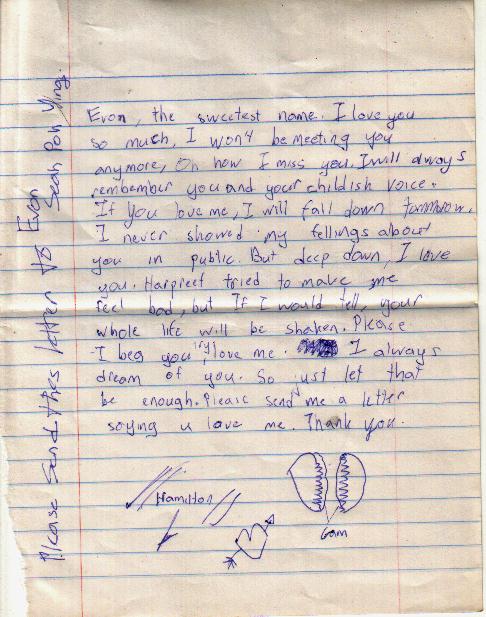 Please send thes letter to Evon
Seah Poh Ying.
Evon, the sweetest name. I love you
so much, I won't be meeting you
anymore, Oh how I miss you. I will always
remember you and your childish voice.
If you love me, I will fall down tommrow.
I never showed my fellings about
you in public. But deep down, I love
you. Harpreet tried to make me
feel bad, but If I would tell, your
whole life will be shaken. Please
I beg you, try love me. I always
dream of you. So just let that
be enough. Please send me a letter
saying u love me. Thank you.
Hamilton